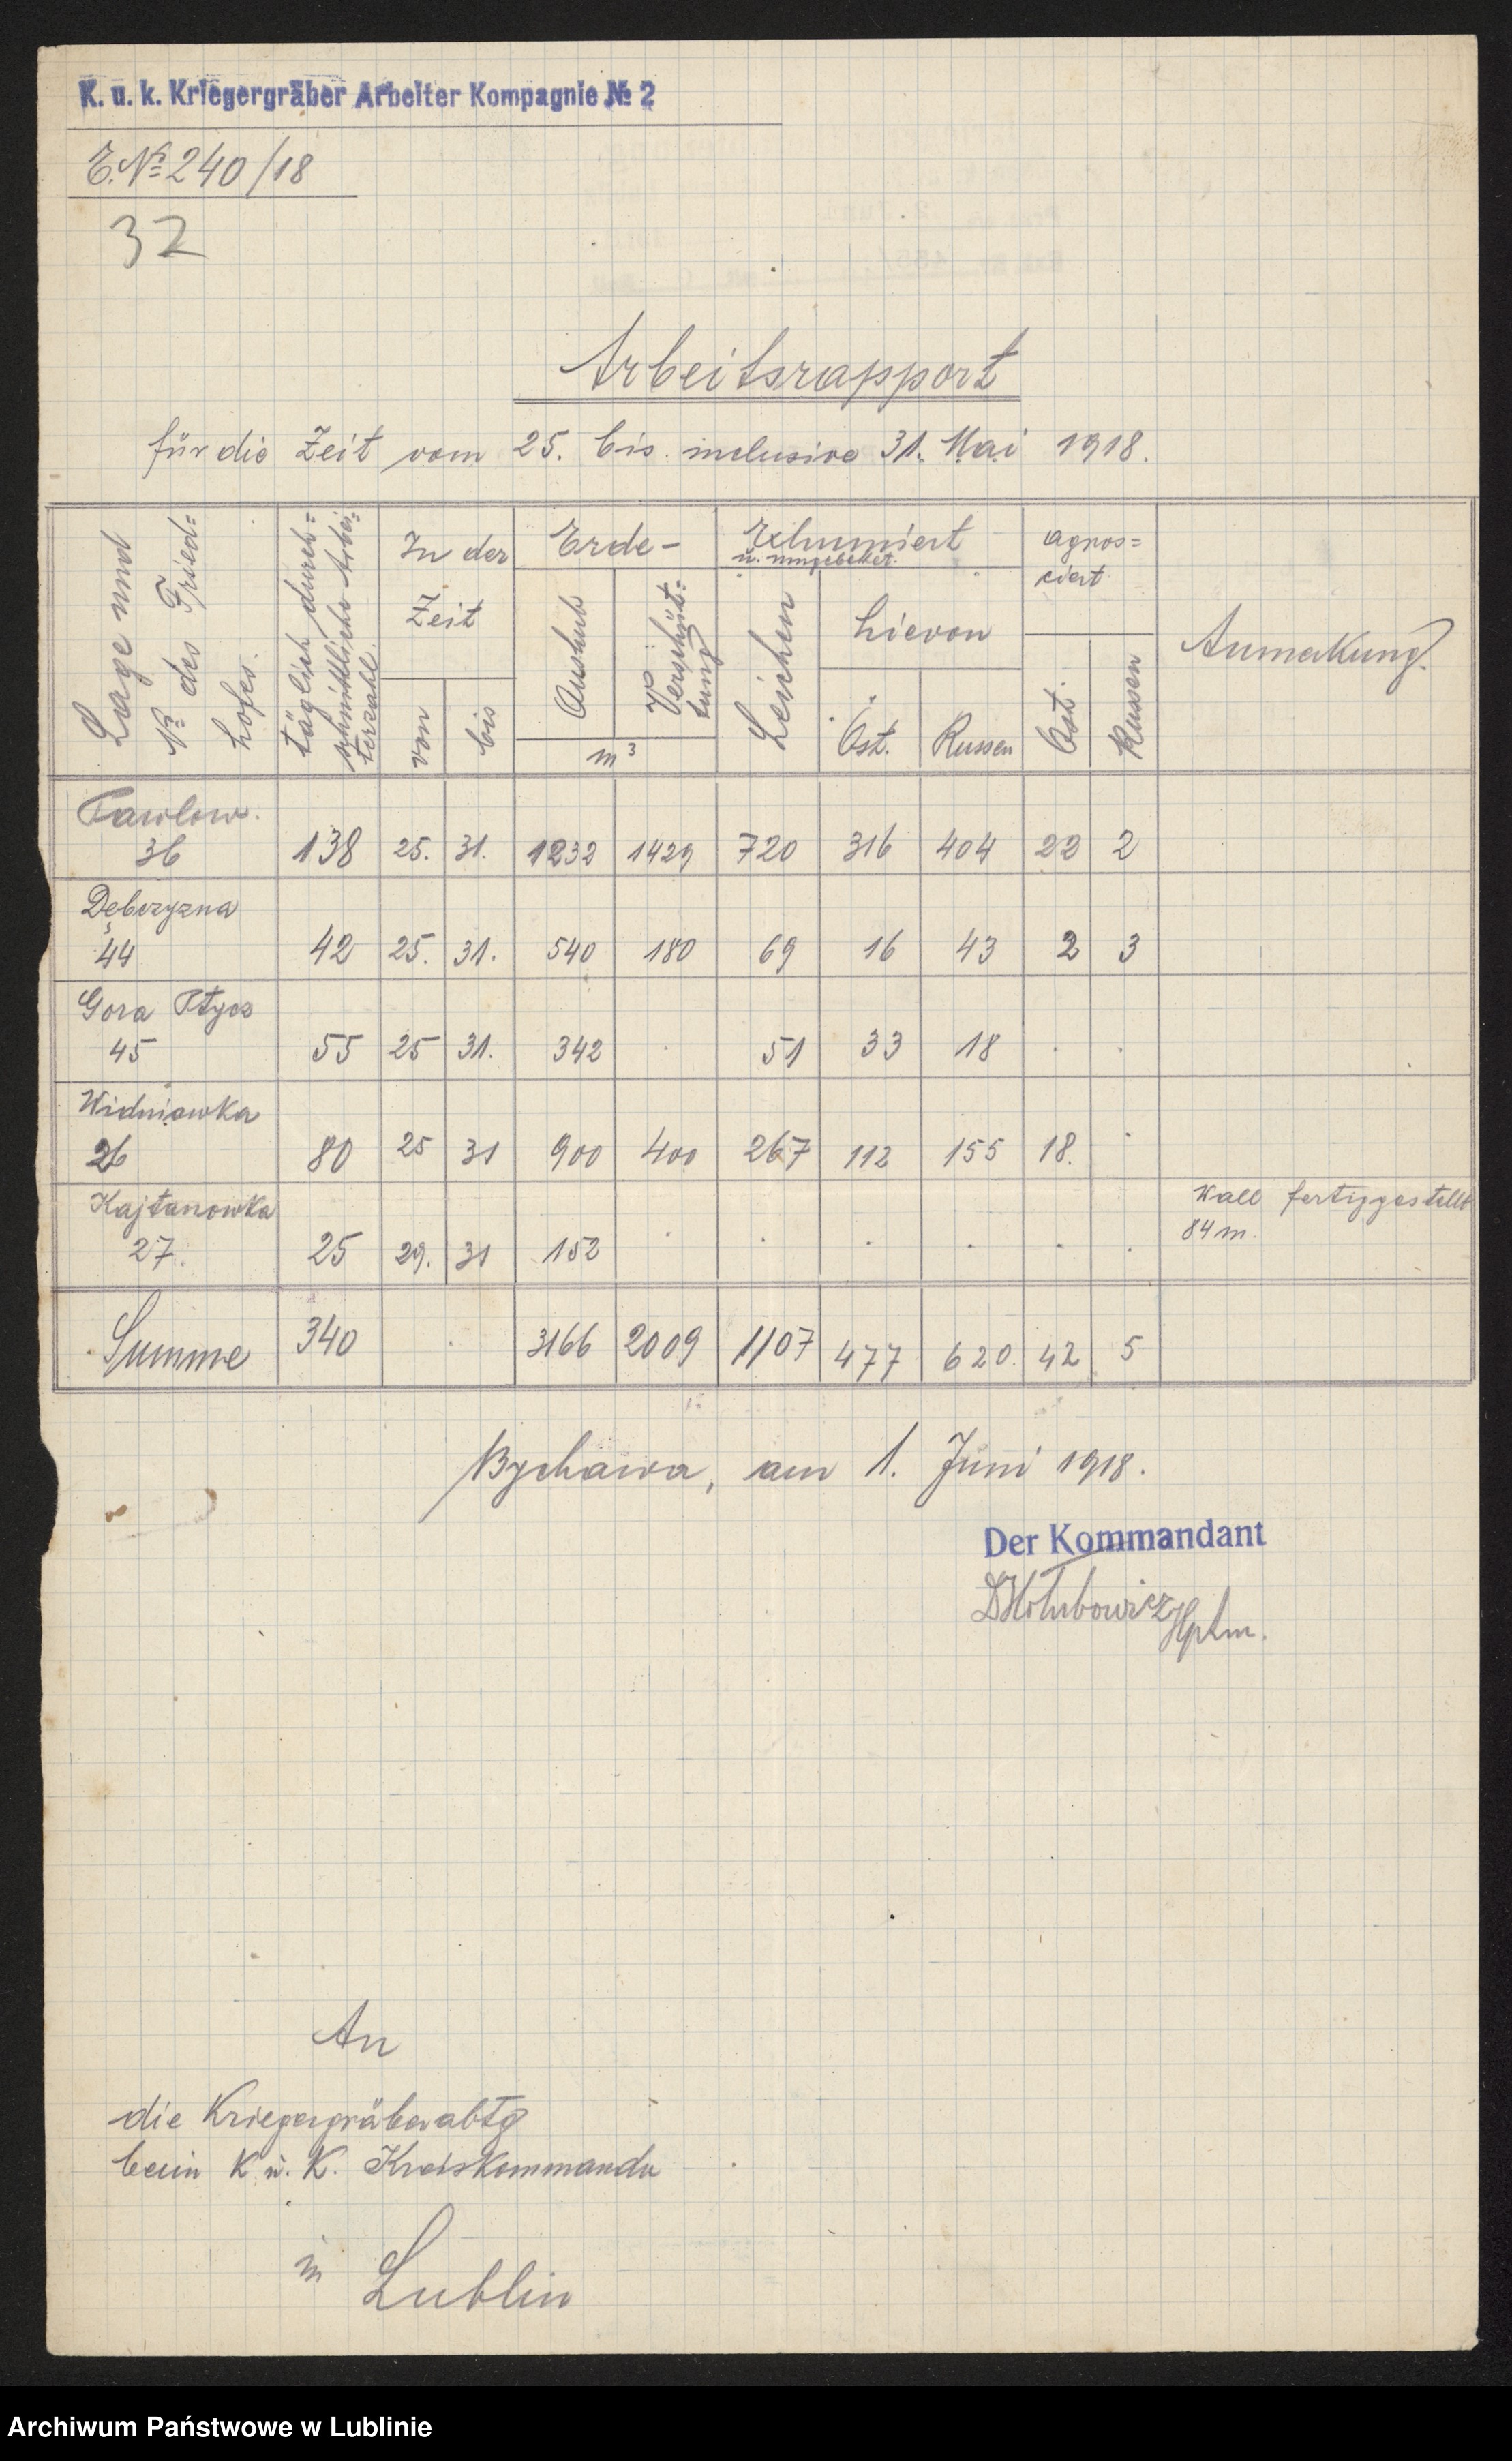 K. u. k. Kriegergräber Arbeiter Kompagnie № 2
E. № 240/18
32
Arbeitsrapport
für die Zeit vom 25. bis. inclusive 31. Mai 1918.
Lage und № des Fried=hofes. täglich durch=schnittliche Arbei=terzahl. In der Zeit Erde- Exhumiert u. umgebettet. agnos=ciert Anmerkung.
von bis Aushub Verschüt=tung Leichen hievon Öst. Russen
m³ Öst. Russen
Pawlow.
36 138 25. 31. 1232 1429 720 316 404 22 2
Dębczyzna
44 42 25. 31. 540 180 69 16 43 2 3
Gora Ptycz
45 55 25 31. 342 . 51 33 18 . .
Widniowka
26 80 25 31 900 400 267 112 155 18. .
Kajtanowka Wall fertiggestellt
27. 25 29. 31 152 . . . . . . 84 m.
Summe 340 . 3166 2009 1107 477 620. 42 5
Bychawa, am 1. Juni 1918.
Der Kommandant
Hołubowicz Hptm.
An
die Kriegergräberabtg
beim K. u. K. Kreiskommando
in Lublin
Archiwum Państwowe w Lublinie